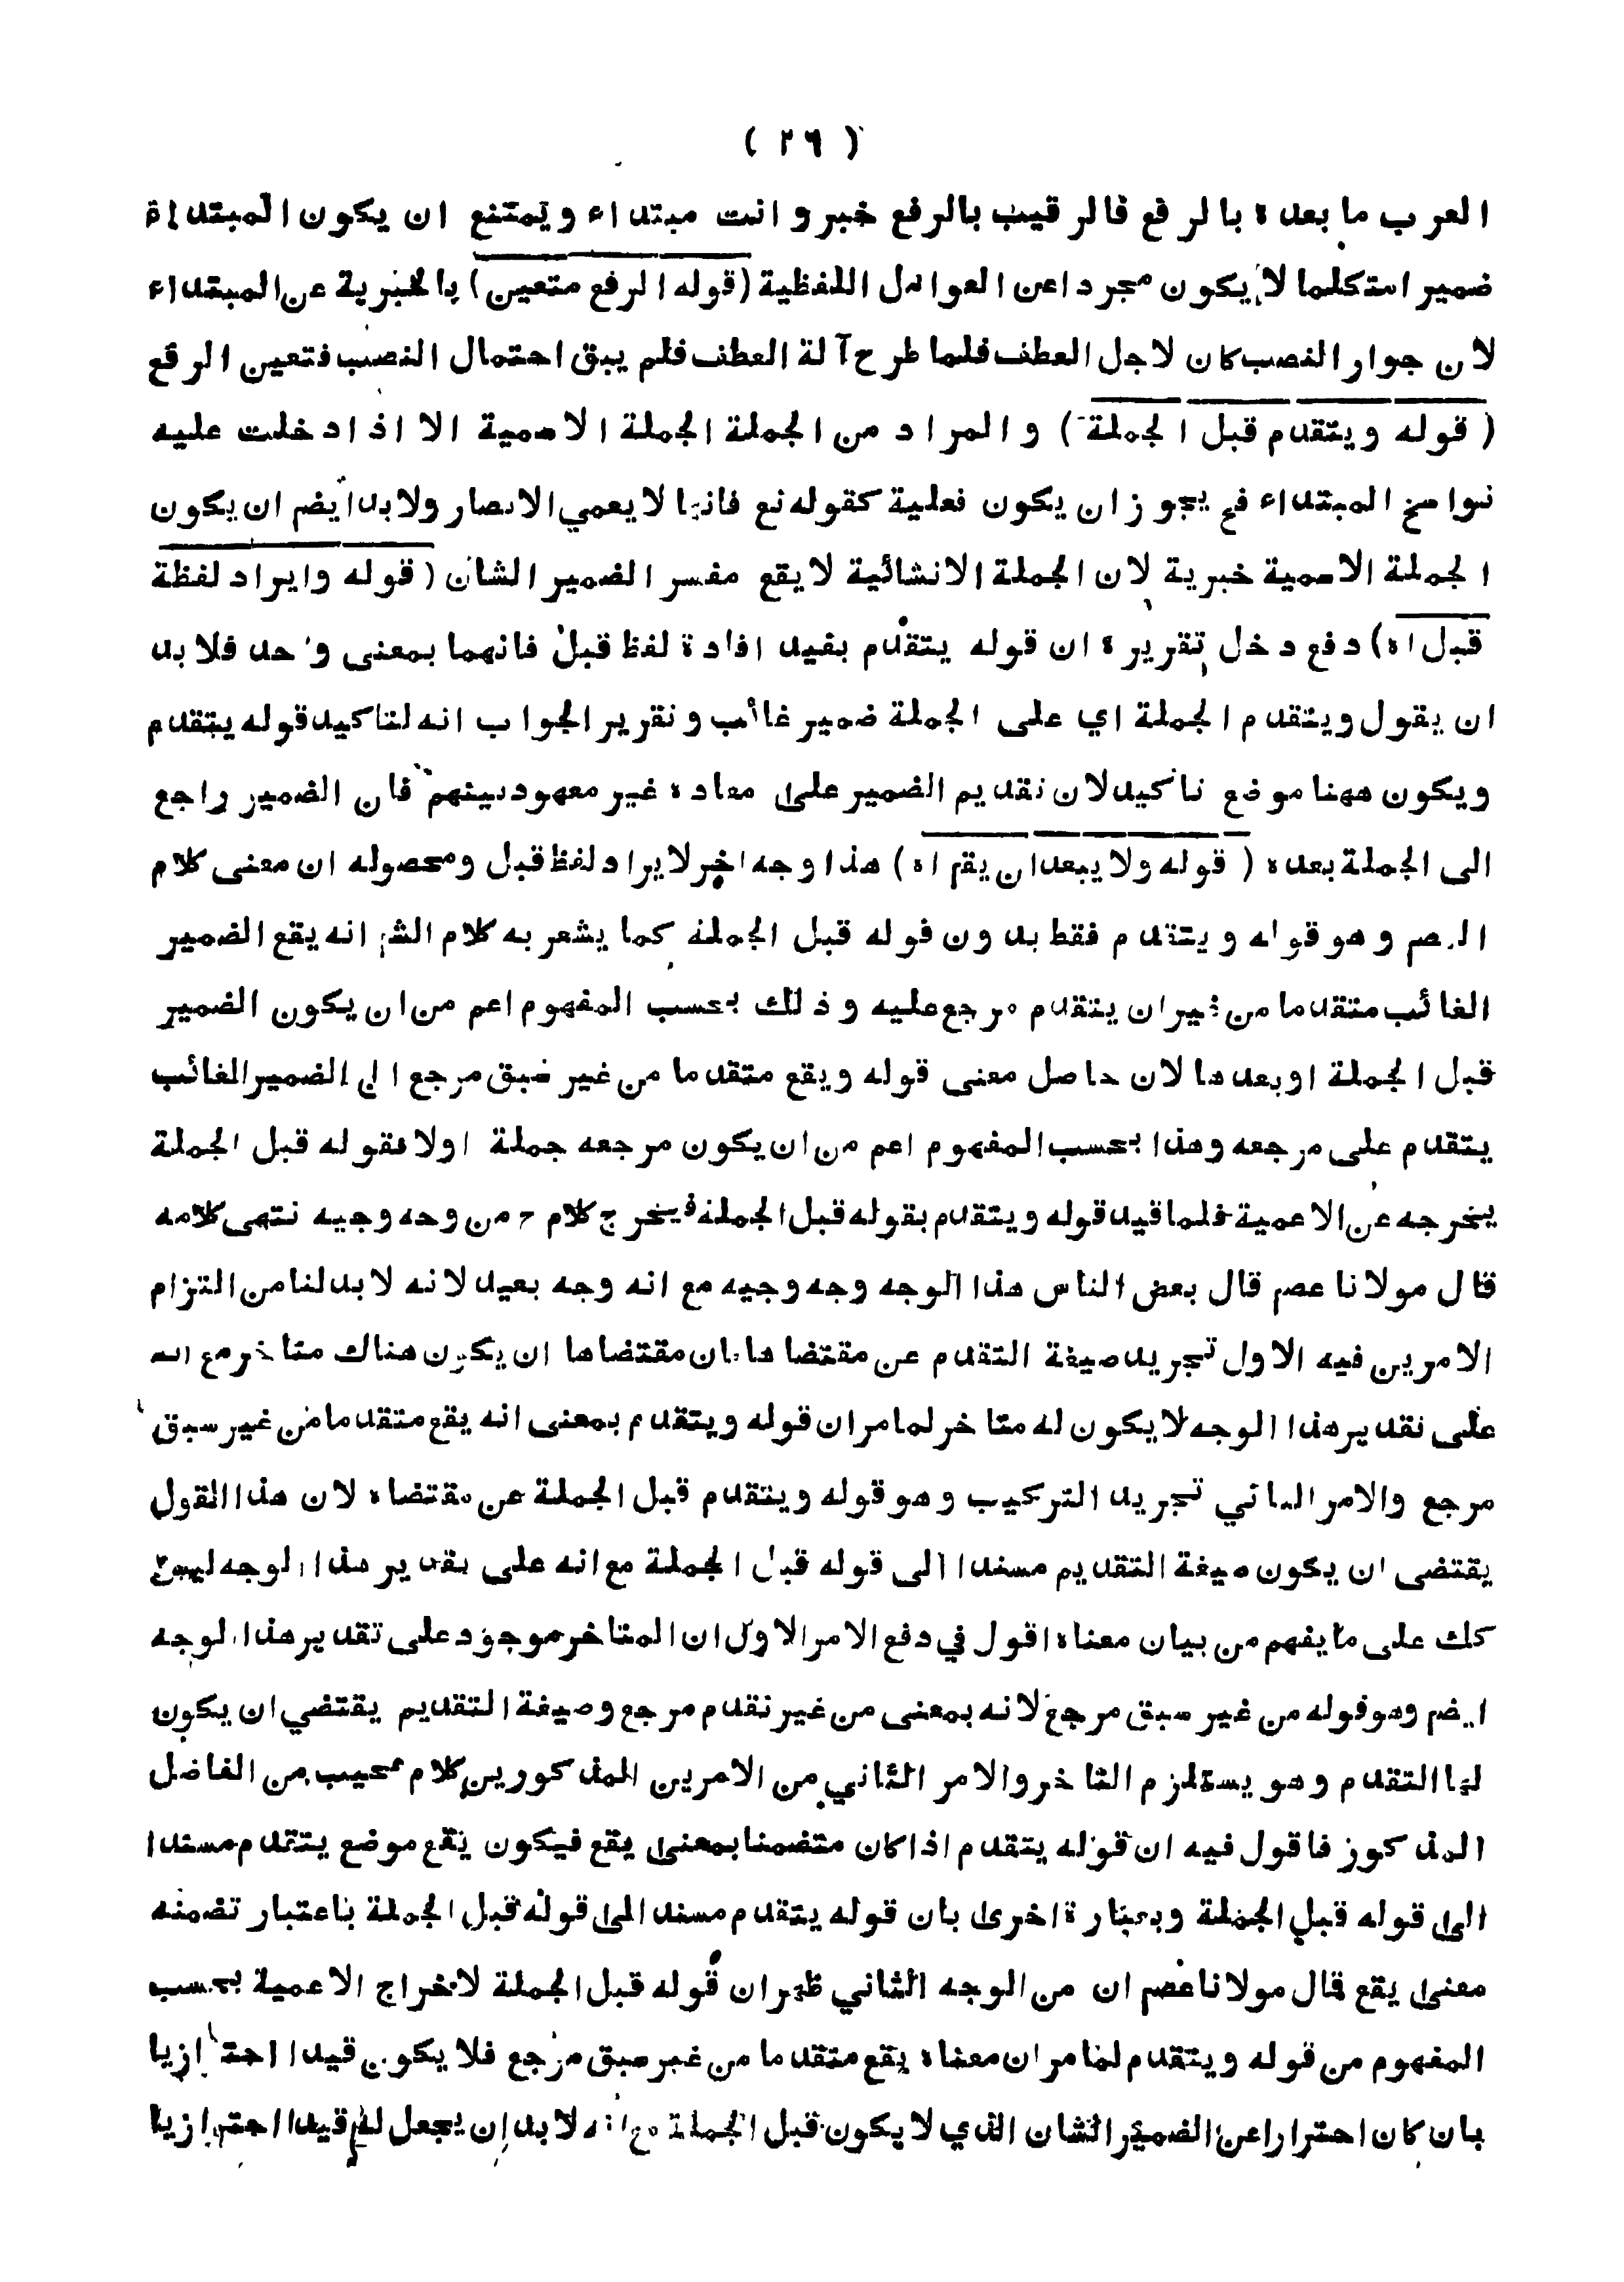 ( ٢٦ )
العرب ما بعده بالرفع فالرقيب بالرفع خبر وانت مبتداء ويمتنع ان يكون المبتداة
ضمير استكلما لا يكون مجرداعن العوامل اللفظية (قوله الرفع متعين) بالخبرية عن المبتداء
لان جواز النصب كان لاجل العطف فلما طرح آلة العطف فلم يبق احتمال النصب فتعين الرفع
( قوله ويتقدم قبل الجملة ) والمراد من الجملة الجملة الاسمية الا اذا دخلت عليه
نواسخ المبتداء فح يجوز ان يكون فعلية كقوله نع فانها لا يعمي الابصار ولابد ايضم ان يكون
الجملة الاسمية خبرية لان الجملة الانشائية لا يقع مفسر الضمير الشان ( قوله وايراد لفظة
قبل اه) دفع دخل تقريره ان قوله يتقدم بفيد افادة لفظ قبل فانهما بمعنى واحد فلابد
ان يقول ويتقدم الجملة اي على الجملة ضمير غائب ونقرير الجواب انه لتاكيد قوله يتقدم
ويكون ههنا موضع تاكيد لان نقديم الضمير على معاده غير معهود بينهم فان الضمير راجع
الى الجملة بعده ( قوله ولا يبعد ان يقم اه ) هذا وجه اخر لايراد لفظ قبل ومحصوله ان معنى كلام
المصم وهو قوله ويتقدم فقط بدون قوله قبل الجملة كما يشعر به كلام الشم انه يقع الضمير
الغائب متقدما من غير ان يتقدم مرجع عليه وذلك بحسب المفهوم اعم من ان يكون الضمير
قبل الجملة اوبعدها لان حاصل معنى قوله ويقع متقدما من غير سبق مرجع الي الضمير الغائب
يتقدم على مرجعه وهذا بحسب المفهوم اعم من ان يكون مرجعه جملة اولا فقوله قبل الجملة
يخرجه عن الاعمية فلما قيد قوله ويتقدم بقوله قبل الجملة فيخرج كلام ح من وحه وجيه نتهى كلامه
قال مولانا عصم قال بعض الناس هذا الوجه وجه وجيه مع انه وجه بعيد لانه لا بد لنا من التزام
الامرين فيه الاول تجريد صيغة التقدم عن مقتضاها بان مقتضاها ان يكون هناك متاخر مع انه
على نقدير هذا الوجه لا يكون له متاخر لما مران قوله ويتقدم بمعنى انه يقع متقدما من غير سبق
مرجع والامر الثاني تجريد التركيب وهو قوله ويتقدم قبل الجملة عن مقتضاه لان هذا القول
يقتضى ان يكون صيغة التقديم مسندا الى قوله قبل الجملة مع انه على تقدير هذا الوجه ليس
كك على ما يفهم من بيان معناه اقول في دفع الامر الاول ان المتاخر موجود على تقدير هذا الوجه
ايضم وهو قوله من غير سبق مرجع لانه بمعنى من غير نقدم مرجع وصيغة التقديم يقتضي ان يكون
لها التقدم وهو يستلزم التاخر والامر الثاني من الامرين المذكورين كلام عجيب من الفاضل
المذكور فاقول فيه ان قوله يتقدم اذا كان متضمنا بمعنى يقع فيكون يقع موضع يتقدم مسندا
الى قوله قبل الجملة وبعبارة اخرى بان قوله يتقدم مسند الى قوله قبل الجملة باعتبار تضمنه
معنى يقع قال مولانا عصم ان من الوجه الثاني ظهر ان قوله قبل الجملة لاخراج الاعمية بحسب
المفهوم من قوله ويتقدم لما مر ان معناه يقع متقدما من غير سبق مرجع فلا يكون قيدا احترازيا
بان كان احترازا عن الضمير الشان الذي لا يكون قبل الجملة مع انه لا بد ان يجعل له قيدا احترازيا